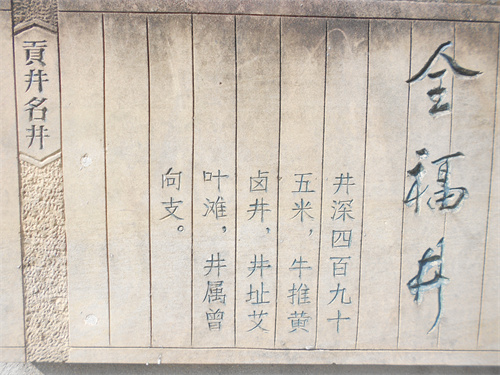 全福井
井深四百九十
五米，牛推黄
卤井，井址艾
叶滩，井属曾
向支。
貢井名井